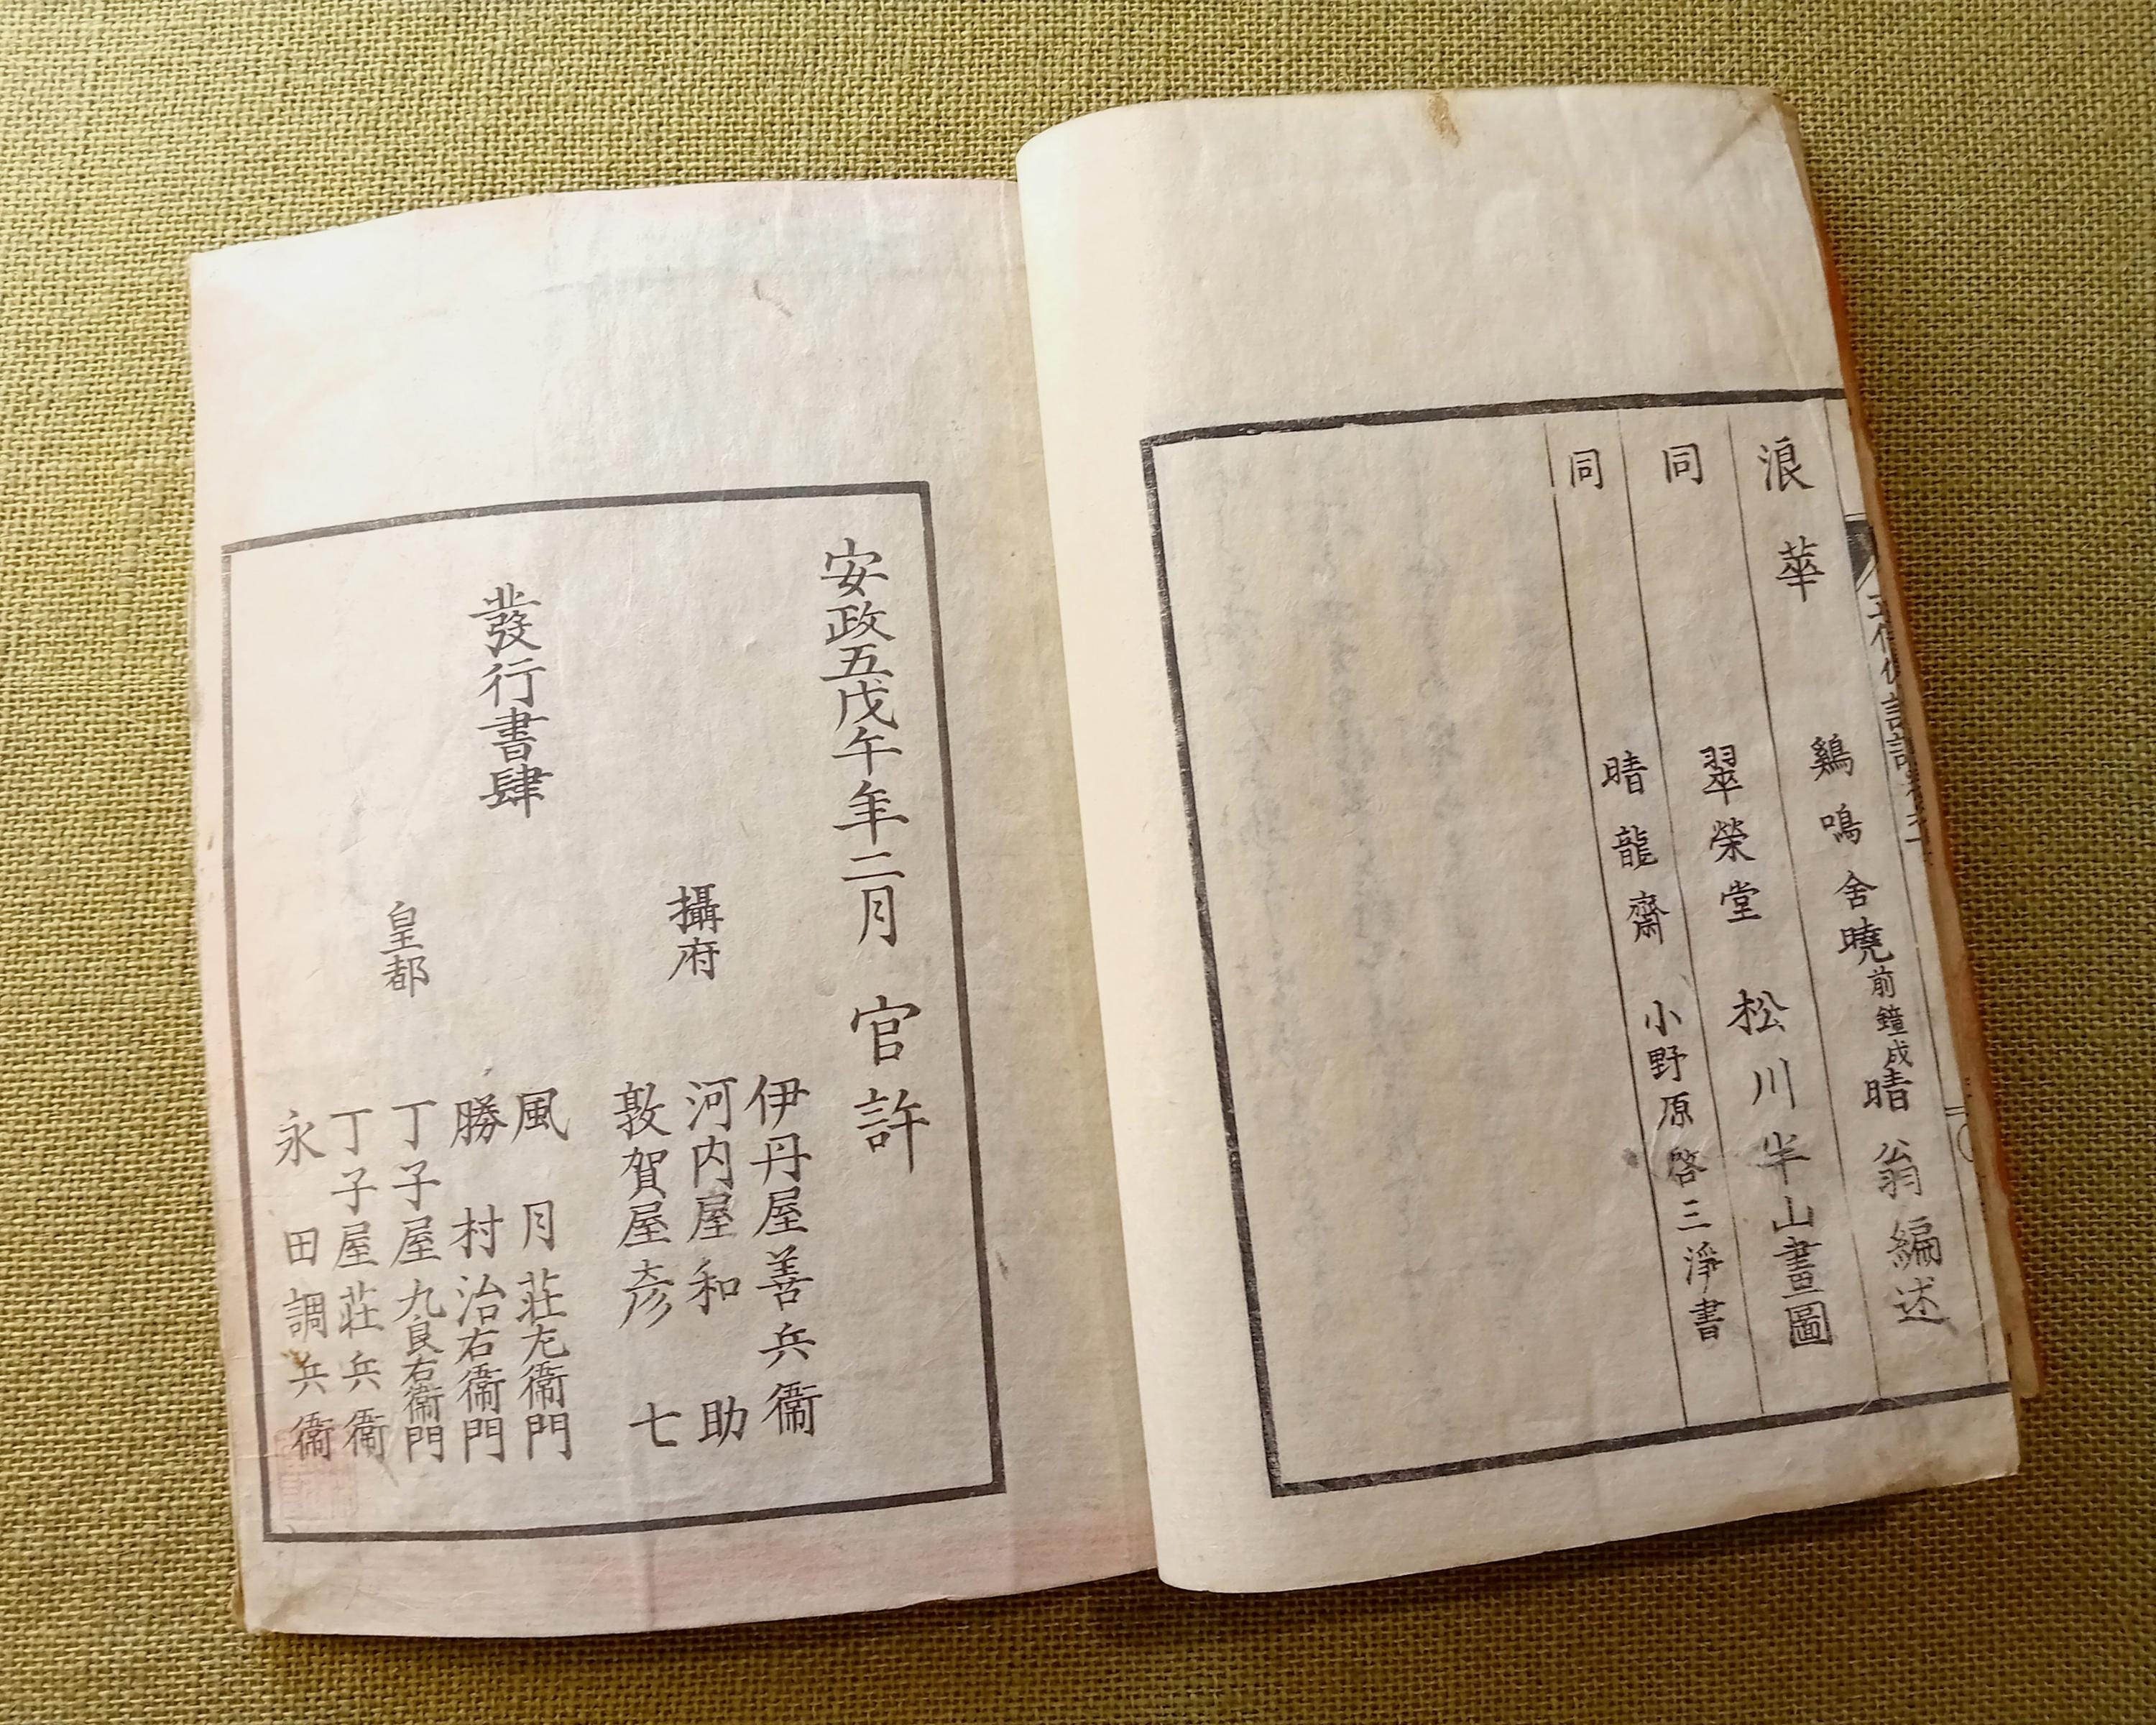 浪華 鷄鳴舎曉前鐘成晴翁編述
同 翠榮堂 松川半山畫圖
同 晴龍齋 小野原啓三淨書
安政五戊午年二月 官許
發行書肆
攝府
伊丹屋善兵衞
河内屋和助
敦賀屋彦七
皇都
風月莊左衞門
勝村治右衞門
丁子屋九良右衞門
丁子屋莊兵衞
永田調兵衞